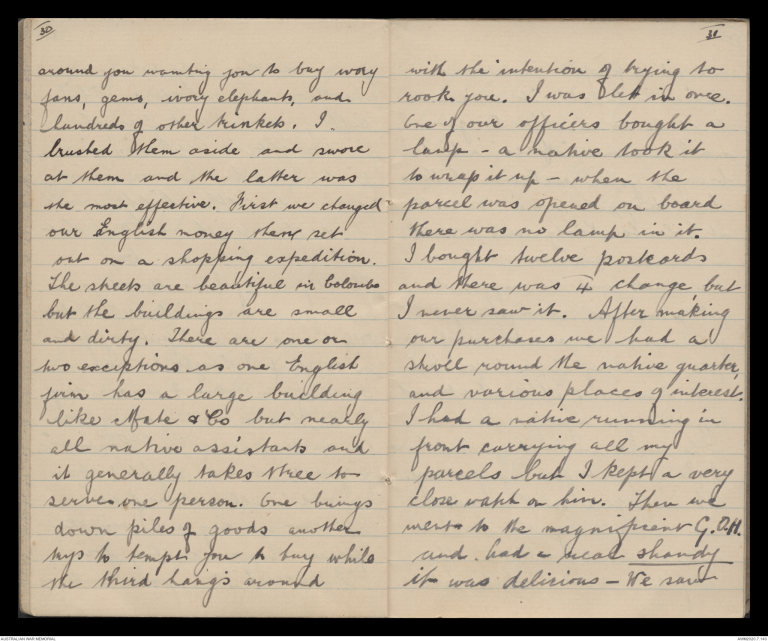 30
around you wanting you to buy ivory
fans, gems, ivory elephants, and
hundreds of other trinkets. I
brushed them aside and swore
at them and the latter was
the most effective. First we changed
our English money then set
out on a shopping expedition.
The streets are beautiful in Colombo
but the buildings are small
and dirty. There are one or
two exceptions as one English
firm has a large building
like Mate & Co but nearly
all native assistants and
it generally takes three to
serve one person. One brings
down piles of goods another
trys to tempt you to buy while
the third hangs around
31
with the intention of trying to
rook you. I was let in once.
One of our officers bought a
lamp - a native took it
to wrap it up - when the
parcel was opened on board
there was no lamp in it.
I bought twelve postcards
and there was 4 change but
I never saw it. After making
our purchases we had a
stroll round the native quarter,
and various places of interest.
I had a native running in
front carrying all my
parcels but I kept a very
close watch on him. Then we
went to the magnificent G.O.H.
and had a shandy
it was delicious - We saw
AUSTRALIAN WAR MEMORIAL